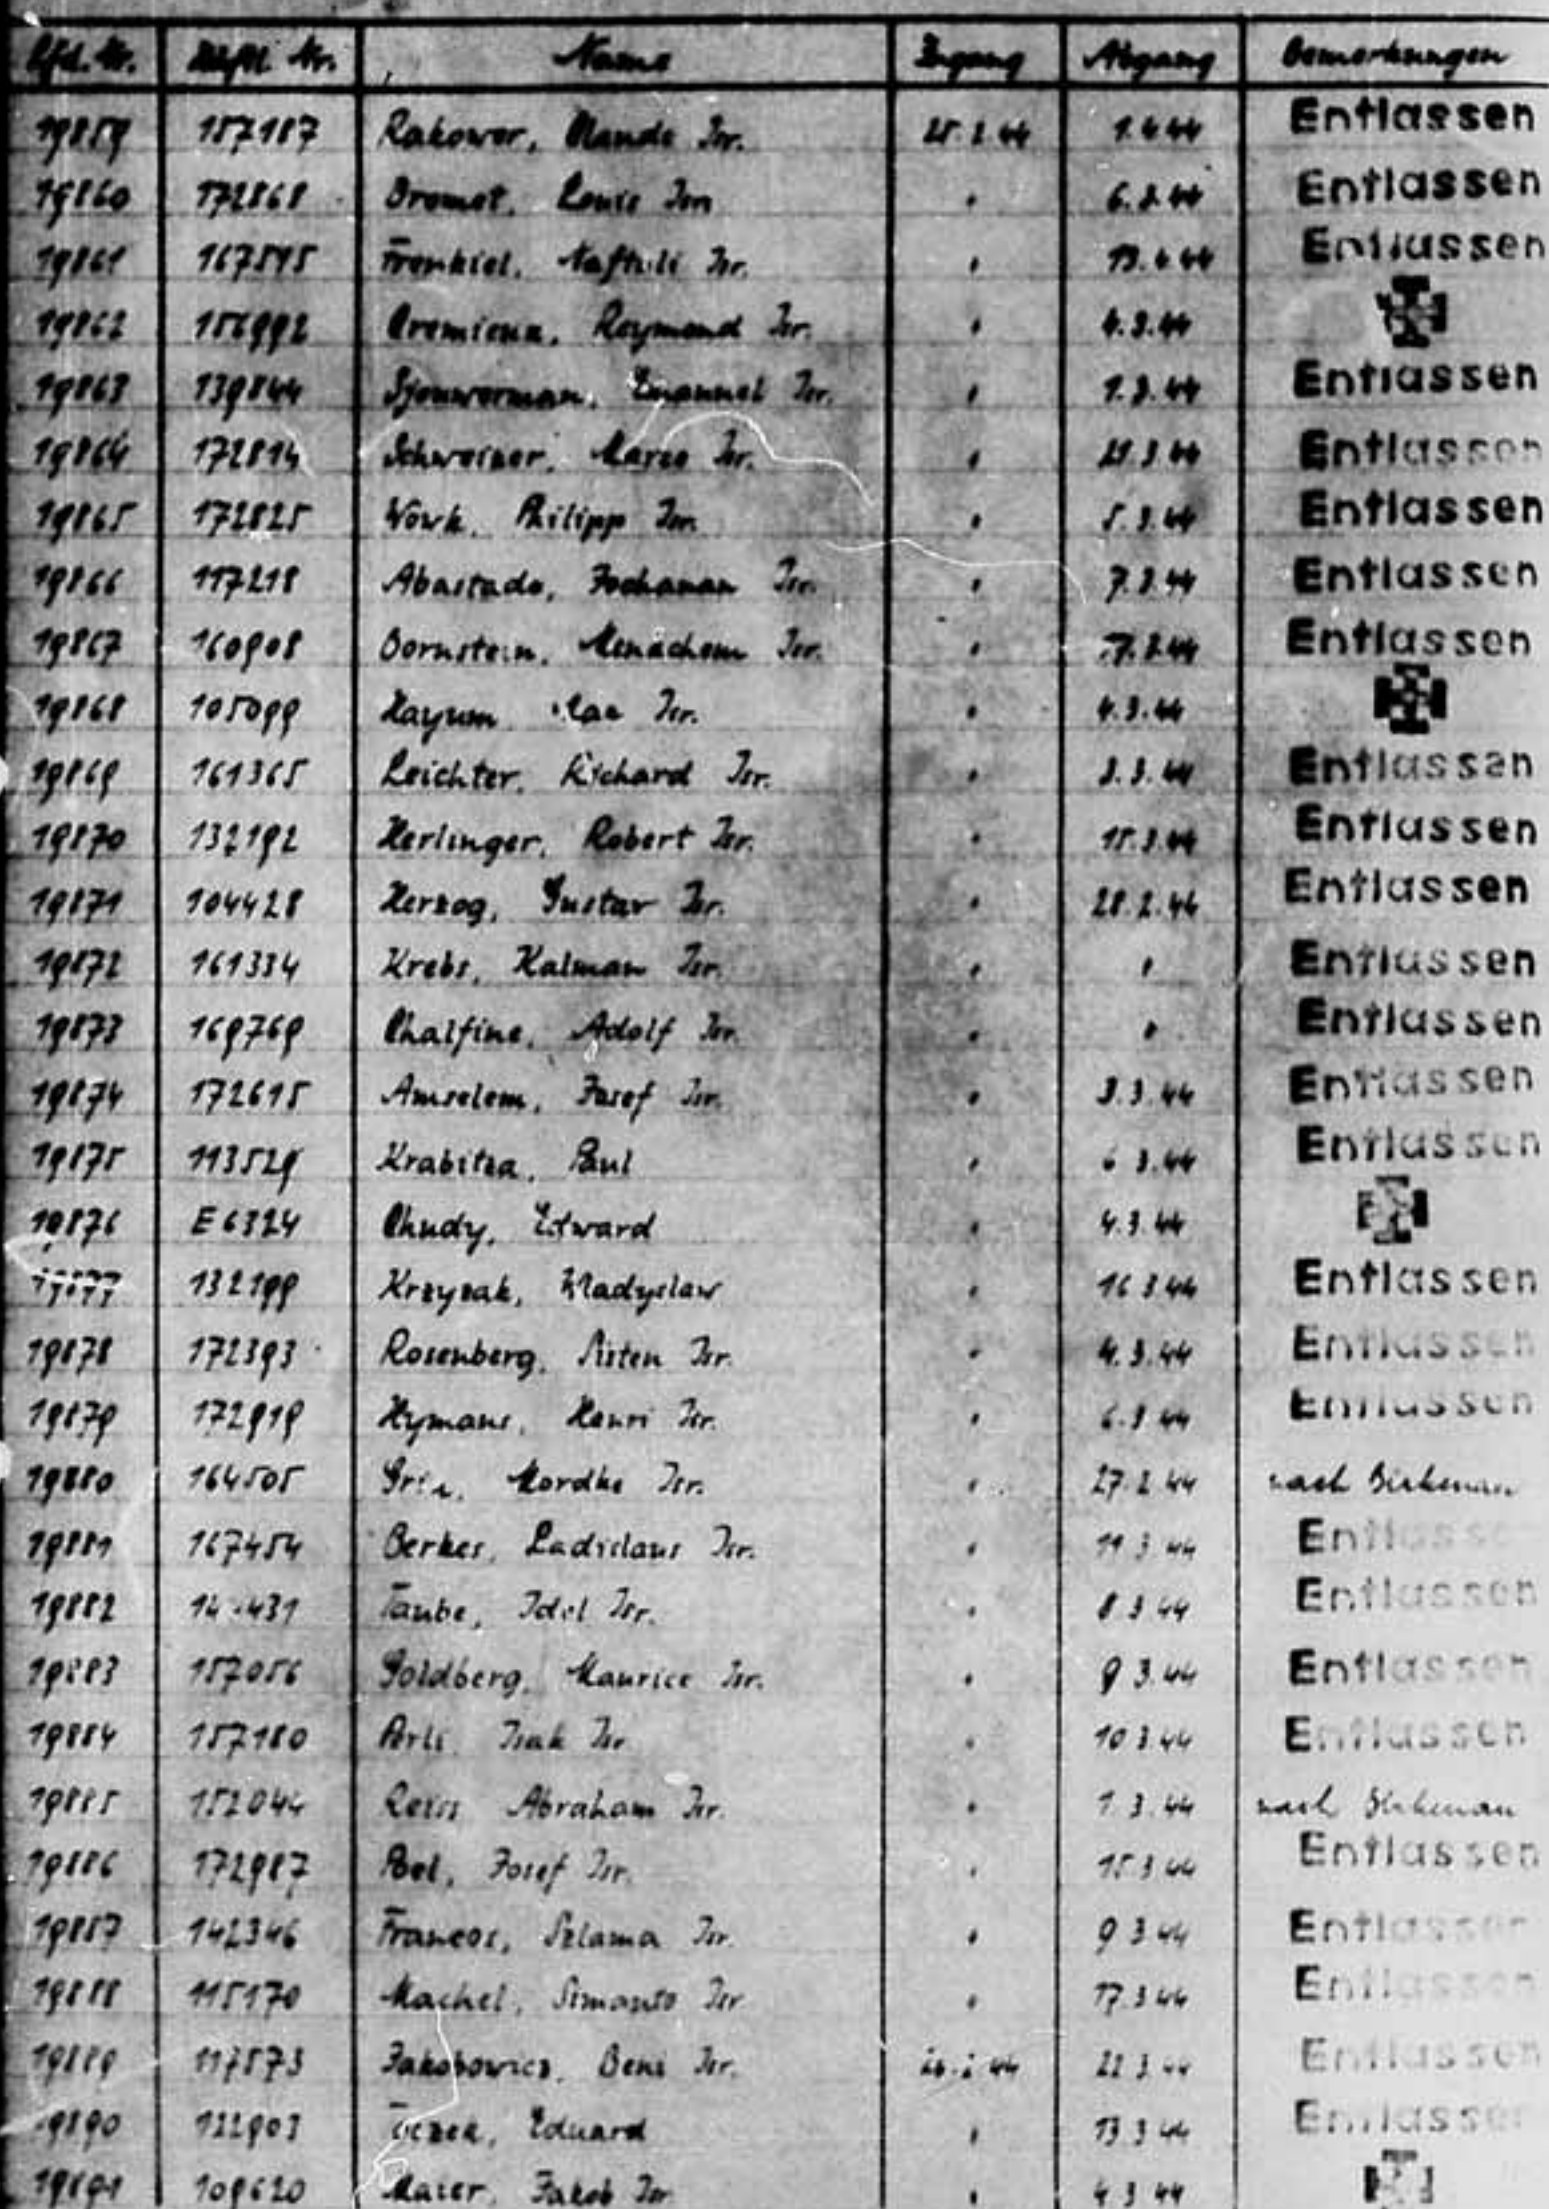 Lfd. Nr. Häftl. Nr. Name Zugang Abgang Bemerkungen
19859 157187 Rakower, Isr. 25.2.44 1.4.44 Entlassen
19860 172868 Isr. " 6.3.44 Entlassen
19861 167515 Frenkiel, Naftuli Isr. " 13.4.44 Entlassen
19862 156992 Raymond Isr. " 4.3.44
19863 139844 Emanuel Isr. " 1.3.44 Entlassen
19864 172814 Isr. " Entlassen
19865 172825 Wowk, Philipp Isr. " 5.3.44 Entlassen
19866 117218 Abastado, Jochanan Isr. " 7.3.44 Entlassen
19867 160908 Bornstein, Menachem Isr. " Entlassen
19868 105099 Isr. " 4.3.44
19869 161365 Leichter, Richard Isr. " 3.3.44 Entlassen
19870 132192 Herlinger, Robert Isr. " 15.3.44 Entlassen
19871 104428 Herzog, Gustav Isr. " 28.2.44 Entlassen
19872 161334 Krebs, Kalman Isr. " " Entlassen
19873 169769 Chalfine, Adolf Isr. " " Entlassen
19874 172615 Amselem, Josef Isr. " 3.3.44 Entlassen
19875 113529 Krabitza, Paul " 6.3.44 Entlassen
19876 E6324 Chudy, Edward " 4.3.44
19877 132199 Krzyzak, Wladyslaw " 16.3.44 Entlassen
19878 172393 Rosenberg, Isr. " 4.3.44 Entlassen
19879 172919 Hymans, Henri Isr. " 6.3.44 Entlassen
19880 164505 Mordke Isr. " 27.2.44 nach Birkenau
19881 167454 Berkes, Ladislaus Isr. " 11.3.44 Entlassen
19882 Taube, Idel Isr. " 8.3.44 Entlassen
19883 157056 Goldberg, Maurice Isr. " 9.3.44 Entlassen
19884 157180 Isak Isr. " 10.3.44 Entlassen
19885 152044 Reiss Abraham Isr. " 1.3.44 nach Birkenau
19886 172987 Josef Isr. " 15.3.44 Entlassen
19887 142346 Francos, Szlama Isr. " 9.3.44 Entlassen
19888 115170 Machel, Simanto Isr. " 17.3.44 Entlassen
19889 117573 Jakobowicz, Beni Isr. 26.2.44 22.3.44 Entlassen
19890 122903 Eduard " 13.3.44 Entlassen
19891 109620 Maier, Jakob Isr. " 4.3.44